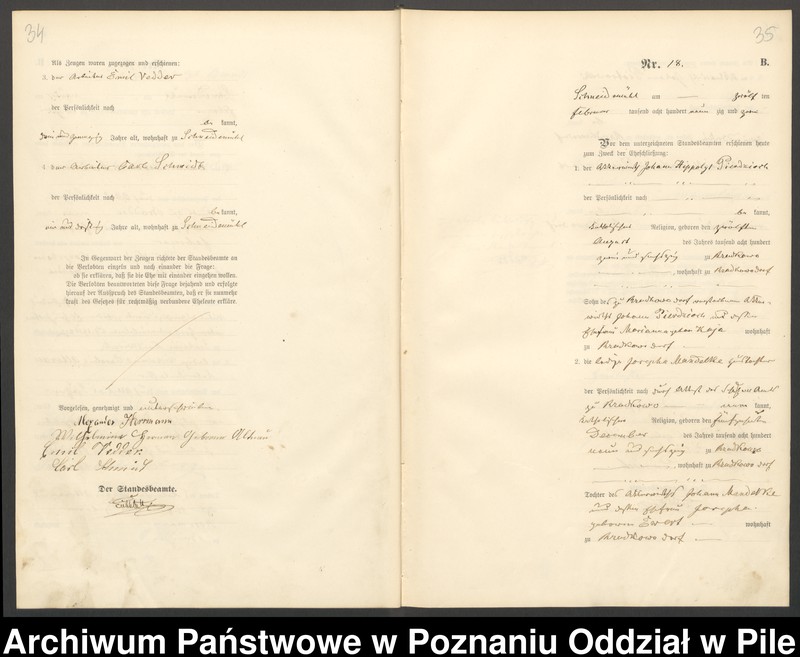 34
Als Zeugen waren zugezogen und erschienen:
3. der Arbeiter Emil Vedder
der Persönlichkeit nach
be kannt,
drei und zwanzig Jahre alt, wohnhaft zu Schneidemühl
4. der Arbeiter Carl Schmidt
der Persönlichkeit nach
be kannt,
ein und dreißig Jahre alt, wohnhaft zu Schneidemühl
In Gegenwart der Zeugen richtete der Standesbeamte an
die Verlobten einzeln und nach einander die Frage:
ob sie erklären, daß sie die Ehe mit einander eingehen wollen.
Die Verlobten beantworteten diese Frage bejahend und erfolgte
hierauf der Ausspruch des Standesbeamten, daß er sie nunmehr
kraft des Gesetzes für rechtmäßig verbundene Eheleute erkläre.
Vorgelesen, genehmigt und unterschrieben
Alexander Herrmann
Wilhelmine Herrmann Geborene
Emil Vedder
Carl Schmidt
Der Standesbeamte.
35
Nr. 18. B.
Schneidemühl am zwölf ten
Februar tausend acht hundert neun zig und zwei
Vor dem unterzeichneten Standesbeamten erschienen heute
zum Zweck der Eheschließung:
1. der Ackerwirth Johann Hippolyt Pierdzioch
der Persönlichkeit nach
be kannt,
katholischer Religion, geboren den zwölften
August des Jahres tausend acht hundert
zwei und fünfzig zu Bredkowo
, wohnhaft zu Bredkowodorf
Sohn des zu Bredkowo dorf verstorbenen Acker-
wirths Johann Pierdzioch und dessen
Ehefrau Marianna geboren Kaja wohnhaft
zu Bredkowo dorf
2. die ledige Josepha Mandelke
der Persönlichkeit nach durch Attest des Schulzen Amts
zu Bredkowo kannt,
katholischer Religion, geboren den fünfzehnten
December des Jahres tausend acht hundert
neun und fünfzig zu Bredkowo
, wohnhaft zu Bredkowo dorf
Tochter des Ackerwirths Johann Mandelke
und dessen Ehefrau Josepha
geborenen wohnhaft
zu Bredkowo dorf
Archiwum Państwowe w Poznaniu Oddział w Pile